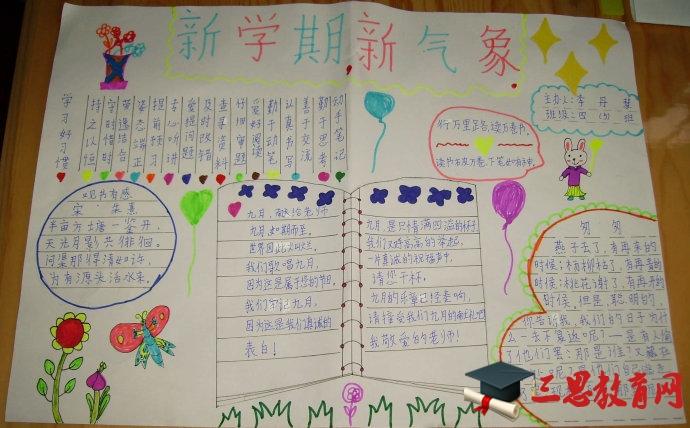 新学期新气象
主办人：李丹
班级：四（6）班
学习好习惯
持之以恒
守时惜时
姿态端正
提前预习
专心听讲
爱提问题
及时改错
查漏资料
仔细审题
爱好阅读
勤于动笔
认真书写
善于交流
勤于思考
动手笔记
行万里路，读万卷书。
读书破万卷，下笔如有神。
观书有感
宋：朱熹
半亩方塘一鉴开，
天光云影共徘徊。
问渠那得清如许，
为有源头活水来。
九月，献给老师
九月如期而至。
世界因此
我们歌唱九月，
因为这是属于您的节日。
我们牢记九月。
因为这是我们真诚的
表白！
九月是只情满四溢的杯子
我们双手高高的举起，
一片真诚的祝福声中，
请您干杯。
九月的乐章已经奏响，
请接受我们九月的献礼吧
我敬爱的老师！
匆匆
燕子去了，有再来的
时候；杨柳枯了，有再青的
时候；桃花谢了，有再开的
时候。但是，聪明的，
你告诉我，我们的日子为什
么一去不复返呢？——是有人偷
了他们罢：那是谁？又藏在
三思教育网